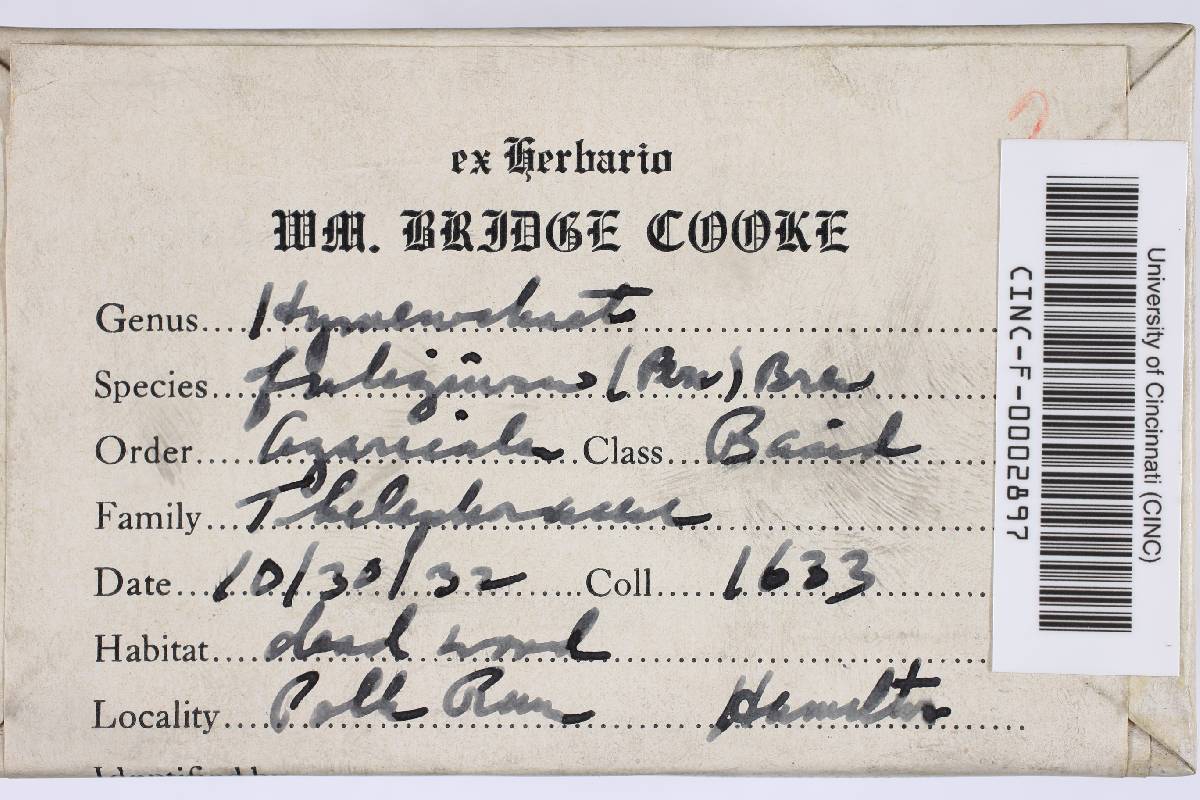 ex Herbario
WM. BRIDGE COOKE
Genus....Hymenochaet
Species...fuliginosa (Pers) Bres
Order.....Agaricales Class...Basid
Family...Thelephoraceae
Date...10/30/32 Coll.....1633
Habitat....dead wood
Locality....Polk Run Hamilton
University of Cincinnati (CINC)
CINC-F-0002897